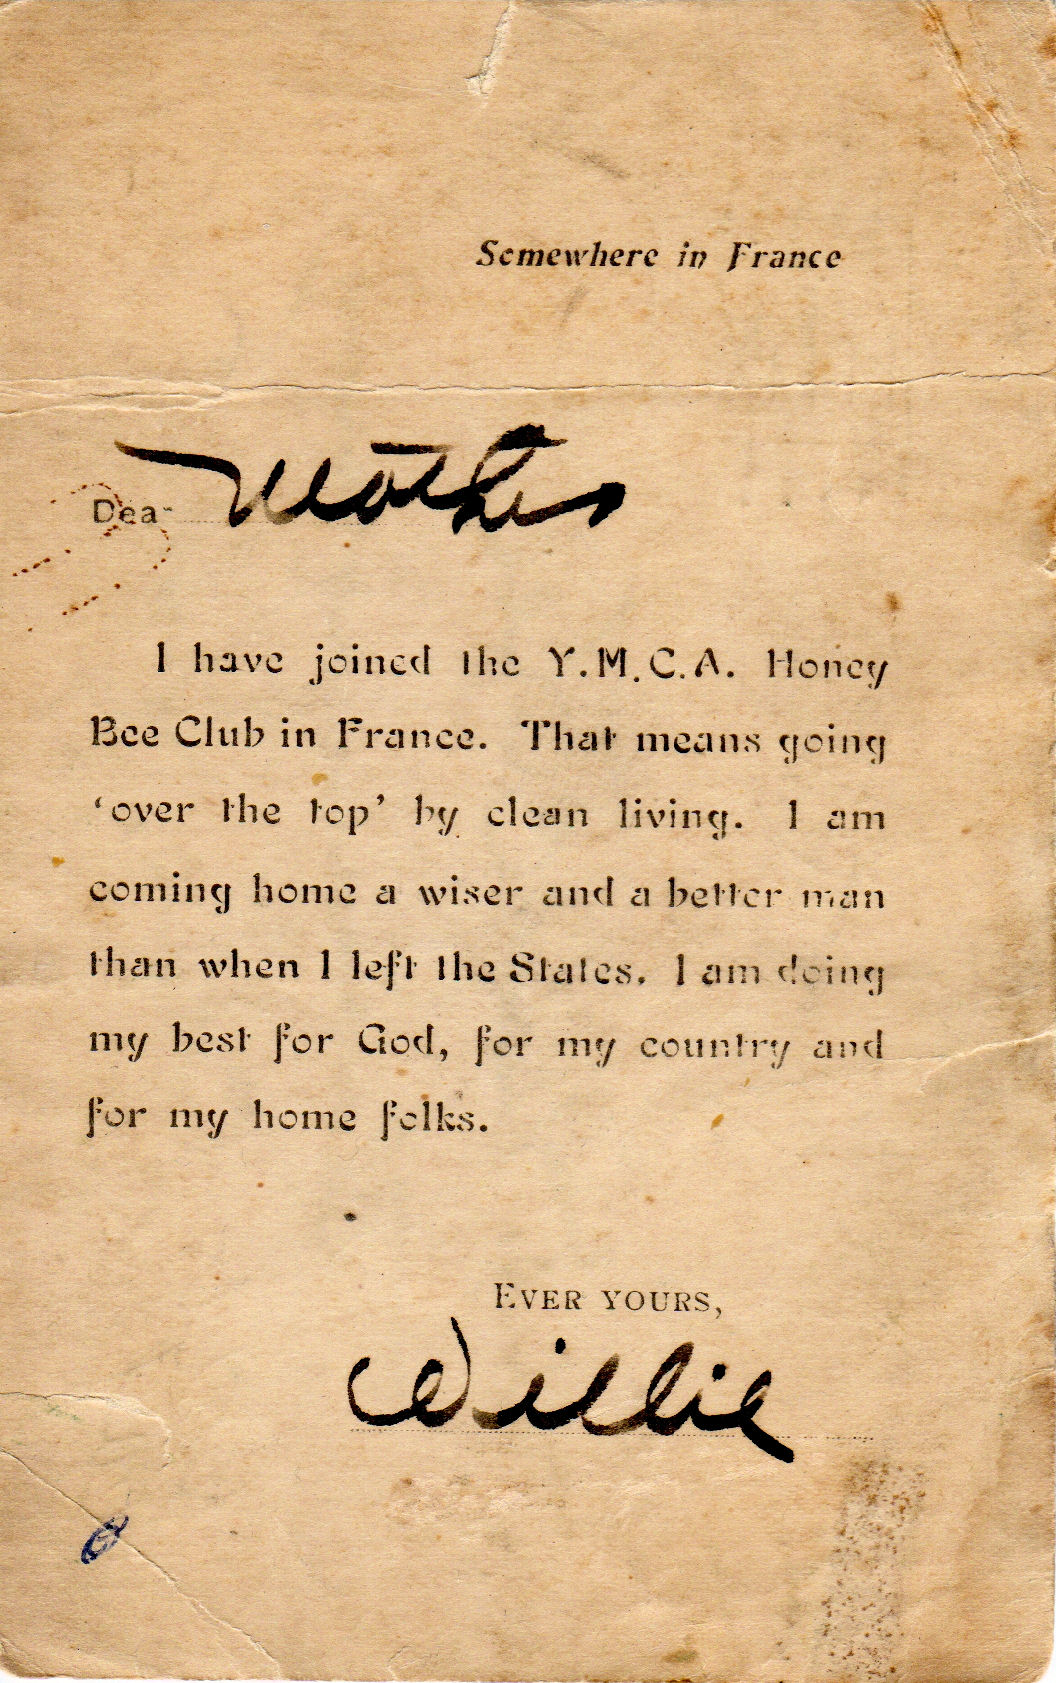 Somewhere in France
Dear Mother
I have joined the Y.M.C.A. Honey
Bee Club in France. That means going
‘over the top’ by clean living. I am
coming home a wiser and a better man
than when I left the States. I am doing
my best for God, for my country and
for my home folks.
EVER YOURS,
Willie